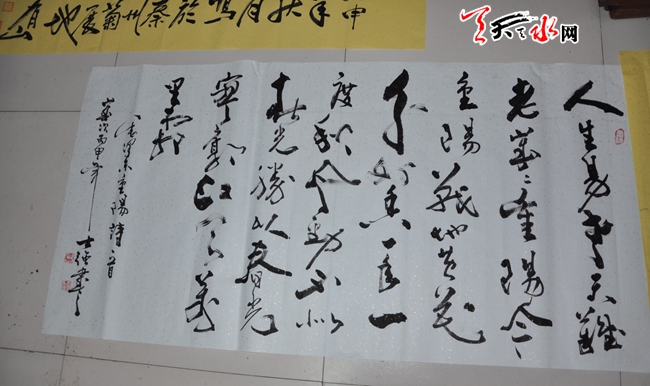 天天天水网
人生易老天難
老歲々重陽今又
重陽戰地黄花
分外香一年一
度秋風勁不似
春光勝似春光
寥廓江天萬
里霜
毛澤東重陽詩一首
歲次丙申年